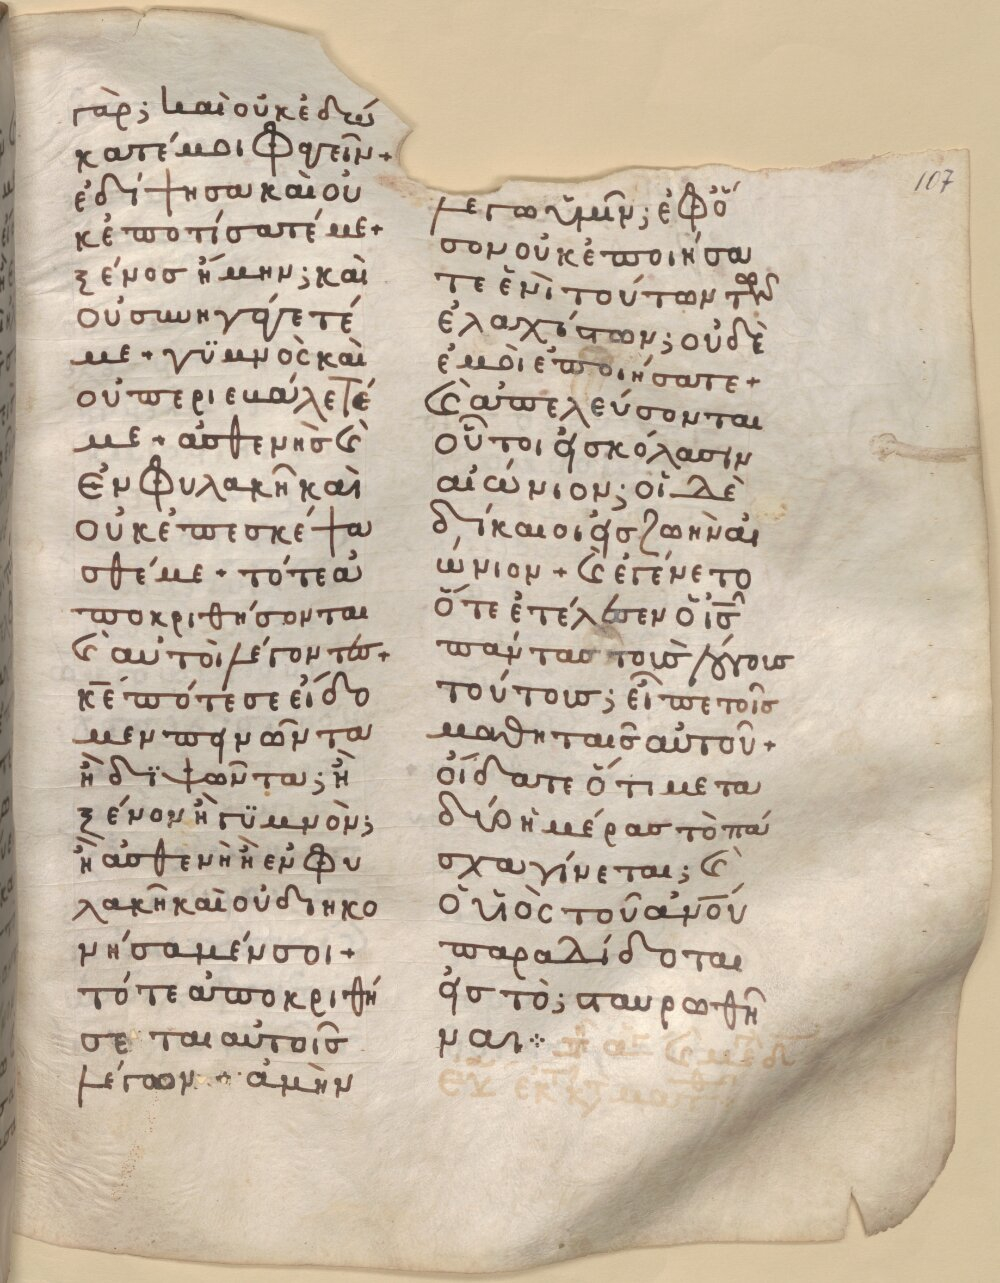 γὰρ; καὶ οὐκ ἐδώ
κατέ μοι φαγεῖν +
ἐδίψησα καὶ οὐ
κ ἐποτίσατέ με +
ξένοσ ἤμην; καὶ
οὐ συνηγάγετέ
με + γϋμνὸς καὶ
οὐ περιεβάλετέ
με + ἀσθενὴσ κ(αὶ)
ἐν φυλακῆ καὶ
οὐκ ἐπεσκέψα
σθέ με + τότε ἀ
ποκριθήσονται
κ(αὶ) αὐτοὶ λέγοντεσ +
κ̅ε̅ πότε σε εἴδο
μεν πεινῶντα
ἢ δϊψῶντα; ἢ
ξένον ἢ γϋμνὸν;
ἢ ἀσθενὴ ἢ ἐν φυ
λακῆ καὶ οὐ διηκο
νήσαμέν σοι +
τότε ἀποκριθή
σεται αὐτοῖσ
λέγων + ἀμὴν
107
λέγω ὑμῖν; ἐφ' ὅ
σον οὐκ ἐποιήσα
τε ἑνὶ τούτων τῶν
ἐλαχίστων; οὐδὲ
ἐμοὶ ἐποιήσατε +
κ(αὶ) ἀπελεύσονται
οὗτοι εἰσ κόλασιν
αἰώνιον; οἱ δὲ
δίκαιοι εἰσ ζωὴν αἰ
ώνιον + κ(αὶ) ἐγένετο
ὅτε ἐτέλεσεν ὁ ι̅σ̅
πάντασ τοὺσ λόγουσ
τούτουσ; εἶπε τοῖσ
μαθηταῖσ αὐτοῦ +
οἴδατε ὅτι μετὰ
δύο ἡμέρασ τὸ πά
σχα γίνεται; κ(αὶ)
ὁ υἱὸς τοῦ α̅ν̅ο̅υ̅
παραδίδοται
εἰσ τὸ; σταυρωθῆ
ναι ⁘